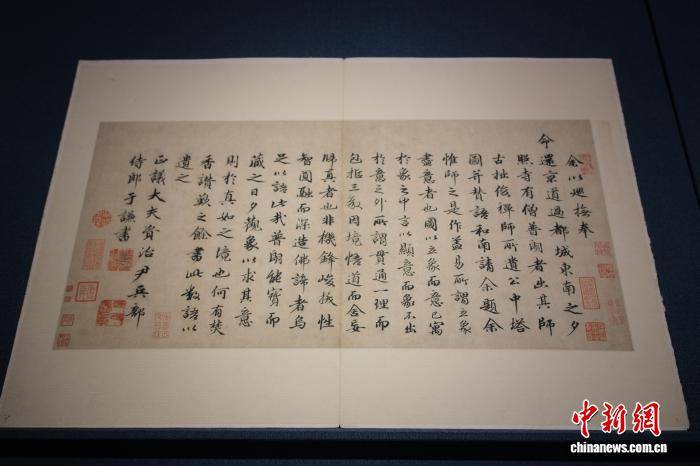 余以巡撫奉
命還京道過都城東南之夕
照寺有僧普朗者出其師
古拙俊禪師所遺公中塔
圖并贊語和南請余題余
惟師之是作蓋易所謂立象
盡意者也圖以立象而意已寓
於象之中言以顯意而象不出
於意之外所謂貫通一理而
包括三教因境悟道而舍妄
歸真者也非機鋒峻拔性
智圓融而深造佛諦者烏
足以語此哉普朗能寶而
藏之日夕觀象以求其意
則於真如之境也何有焚
香讚歎之餘書此數語以
遺之
正議大夫資治尹兵部
侍郎于謙書
中新網
www.
chinanews.com